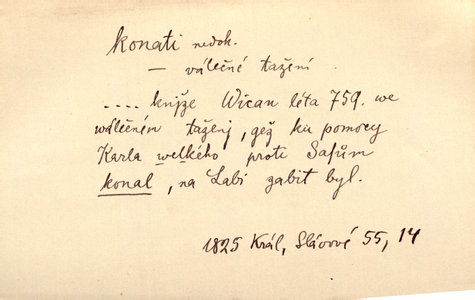 konati nedok.
— válečné tažení
.... knjže Wican léta 759. we
wálečném taženj, gež ku pomocy
Karla welkého proti Sasům
konal, na Labi zabit byl.
1825 Král, Slávové 55, 14